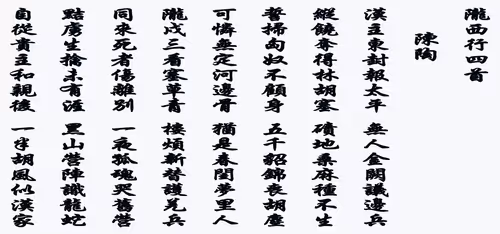 隴西行四首
陳陶
漢主東封報太平 無人金闕議邊兵
縱饒奪得林胡塞 磧地桑麻種不生
誓掃匈奴不顧身 五千貂錦喪胡塵
可憐無定河邊骨 猶是春閨夢裏人
隴戍三看塞草青 樓煩新替護羌兵
同來死者傷離別 一夜孤魂哭舊營
黠虜生擒未有涯 黑山營陣識龍蛇
自從貴主和親後 一半胡風似漢家